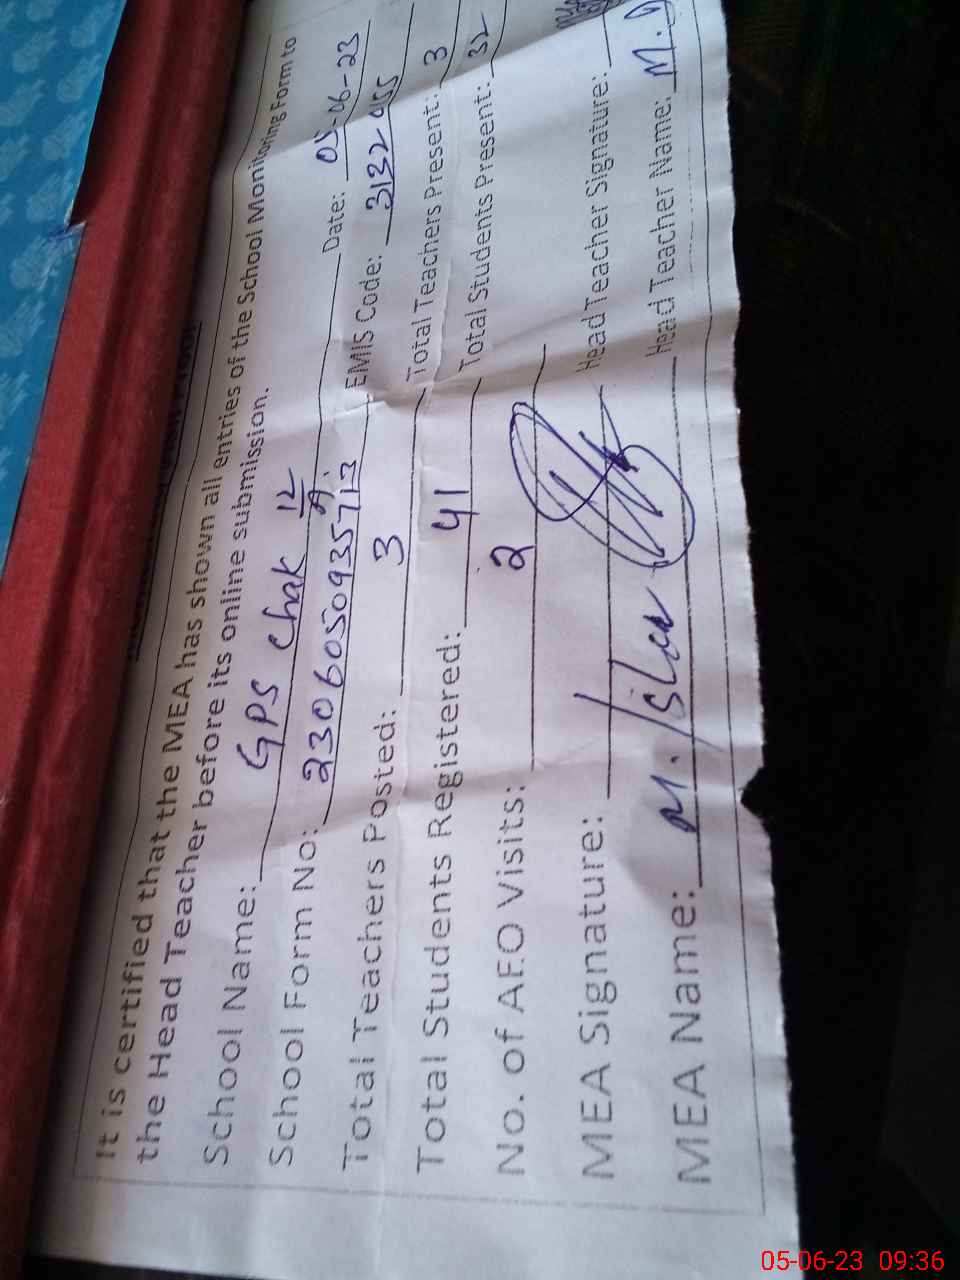 It is certified that the MEA has shown all entries of the School Monitoring Form to
the Head Teacher before its online submission.
School Name: GPS Chak 12/A Date: 05-06-23
School Form No: 230605093571'3 EMIS Code: 31320155
Total Teachers Posted: 3 Total Teachers Present: 3
Total Students Registered: 41 Total Students Present: 32
No. of AEO Visits: 2
MEA Signature: Head Teacher Signature:
MEA Name: M. Head Teacher Name: M.
05-06-23 09:36